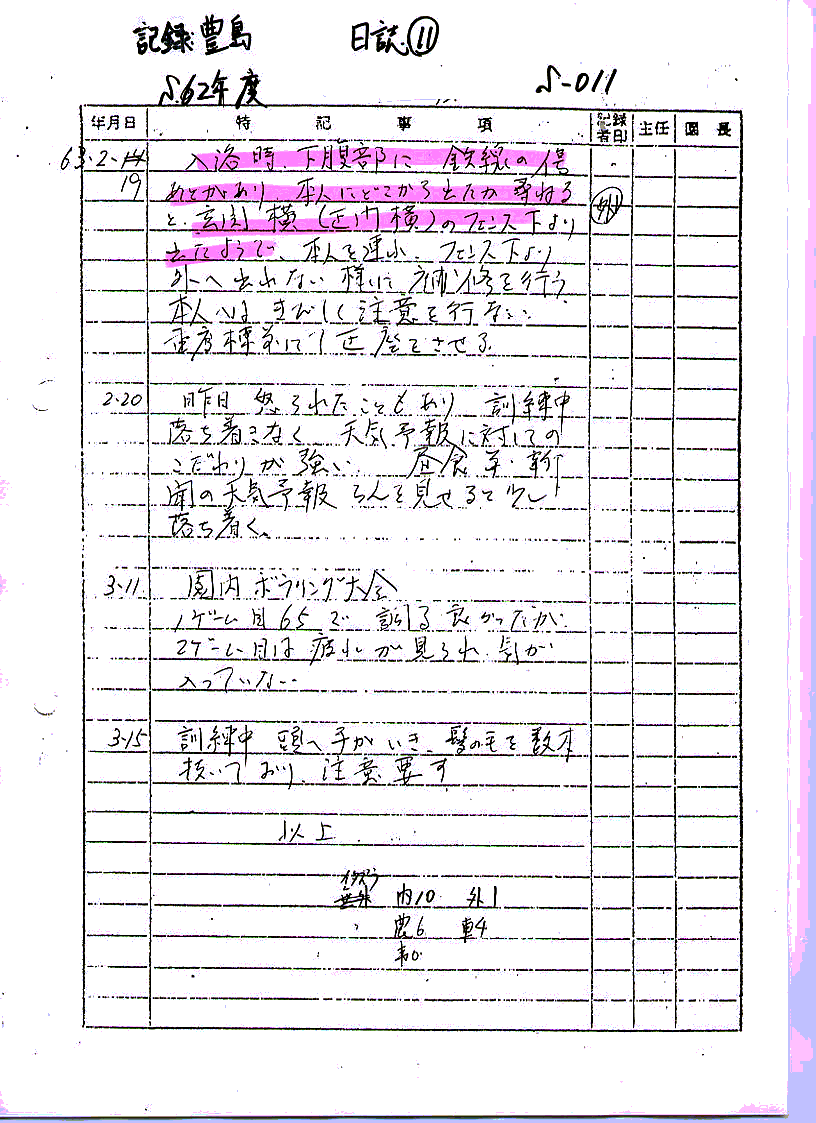 記録 豊島 日誌 ⑪
S.62年度 S-011
年月日 特記事項 記録者印 主任 園長
63・2・ 入浴時、下腹部に 鉄線の傷
19 あとがあり、本人にどこから出たか尋ねる
と、玄関横(正門横)のフェンス下より 外1
出たようで、本人を連れ、フェンス下より
外へ出れない様に補修を行う
本人へは きびしく注意を行ない
重度棟前にて正座をさせる
2・20 昨日 怒られたこともあり 訓練中
落ち着きなく 天気予報に対しての
こだわりが強い 昼食 新
聞の天気予報 らんを見せると少し
落ち着く。
3・11 園内ボーリング大会
1ゲーム目65で 良かったが
2ゲーム目は疲れが見られ 気が
入っていない
3・15 訓練中 頭へ手がいき、髪の毛を数本
抜いており、注意要す
以上
イタズラ
内10 外1
農6 軽4